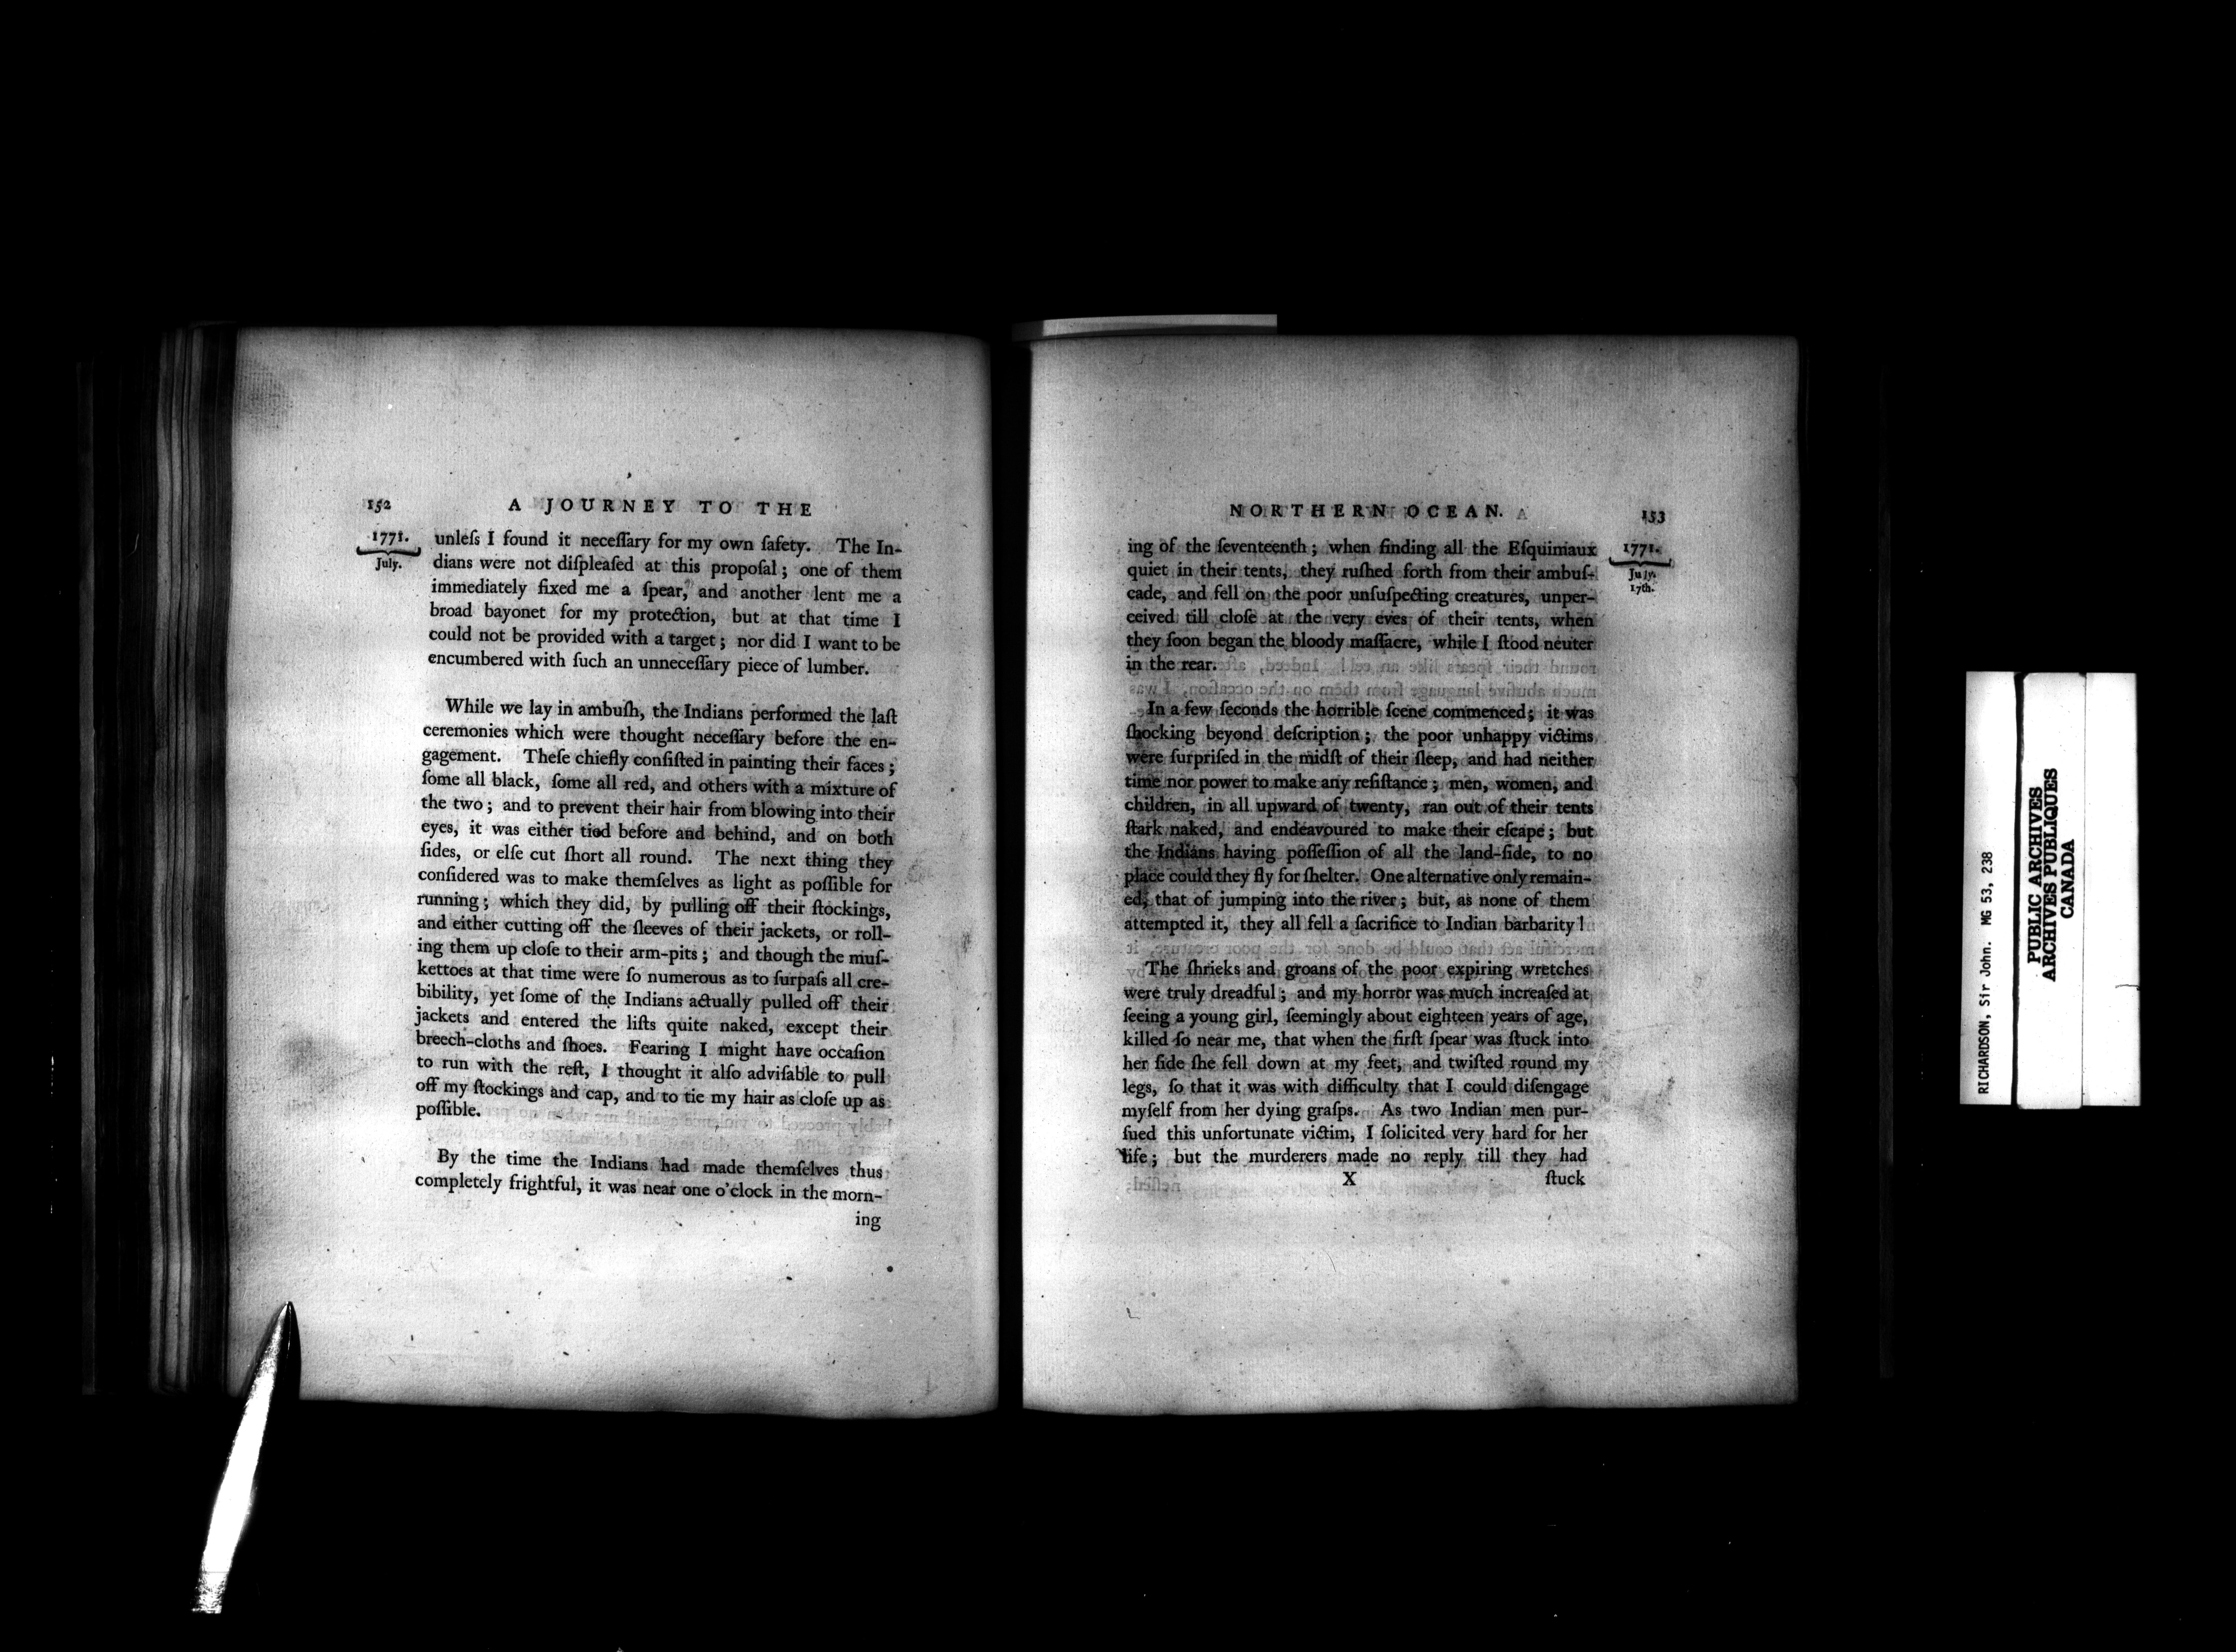 152 A JOURNEY TO THE
1771.
July.
unleſs I found it neceſſary for my own ſafety. The In-
dians were not diſpleaſed at this propoſal; one of them
immediately fixed me a ſpear, and another lent me a
broad bayonet for my protection, but at that time I
could not be provided with a target; nor did I want to be
encumbered with ſuch an unneceſſary piece of lumber.
While we lay in ambuſh, the Indians performed the laſt
ceremonies which were thought neceſſary before the en-
gagement. Theſe chiefly conſiſted in painting their faces;
ſome all black, ſome all red, and others with a mixture of
the two; and to prevent their hair from blowing into their
eyes, it was either tied before and behind, and on both
ſides, or elſe cut ſhort all round. The next thing they
conſidered was to make themſelves as light as poſſible for
running; which they did, by pulling off their ſtockings,
and either cutting off the ſleeves of their jackets, or roll-
ing them up cloſe to their arm-pits; and though the muſ-
kettoes at that time were ſo numerous as to ſurpaſs all cre-
bibility, yet ſome of the Indians actually pulled off their
jackets and entered the liſts quite naked, except their
breech-cloths and ſhoes. Fearing I might have occaſion
to run with the reſt, I thought it alſo adviſable to pull
off my ſtockings and cap, and to tie my hair as cloſe up as
poſſible.
By the time the Indians had made themſelves thus
completely frightful, it was near one o'clock in the morn-
ing
NORTHERN OCEAN. 153
1771.
July.
17th.
ing of the ſeventeenth; when finding all the Eſquimaux
quiet in their tents, they ruſhed forth from their ambuſ-
cade, and fell on the poor unſuſpecting creatures, unper-
ceived till cloſe at the very eves of their tents, when
they ſoon began the bloody maſſacre, while I ſtood neuter
in the rear.
In a few ſeconds the horrible ſcene commenced; it was
ſhocking beyond deſcription; the poor unhappy victims
were ſurpriſed in the midſt of their ſleep, and had neither
time nor power to make any reſiſtance; men, women, and
children, in all upward of twenty, ran out of their tents
ſtark naked, and endeavoured to make their eſcape; but
the Indians having poſſeſſion of all the land-ſide, to no
place could they fly for ſhelter. One alternative only remain-
ed, that of jumping into the river; but, as none of them
attempted it, they all fell a ſacrifice to Indian barbarity!
The ſhrieks and groans of the poor expiring wretches
were truly dreadful; and my horror was much increaſed at
ſeeing a young girl, ſeemingly about eighteen years of age,
killed ſo near me, that when the firſt ſpear was ſtuck into
her ſide ſhe fell down at my feet, and twiſted round my
legs, ſo that it was with difficulty that I could diſengage
myſelf from her dying graſps. As two Indian men pur-
ſued this unfortunate victim, I ſolicited very hard for her
life; but the murderers made no reply till they had
X ſtuck
RICHARDSON, Sir John. MG 53, 238
PUBLIC ARCHIVES
ARCHIVES PUBLIQUES
CANADA